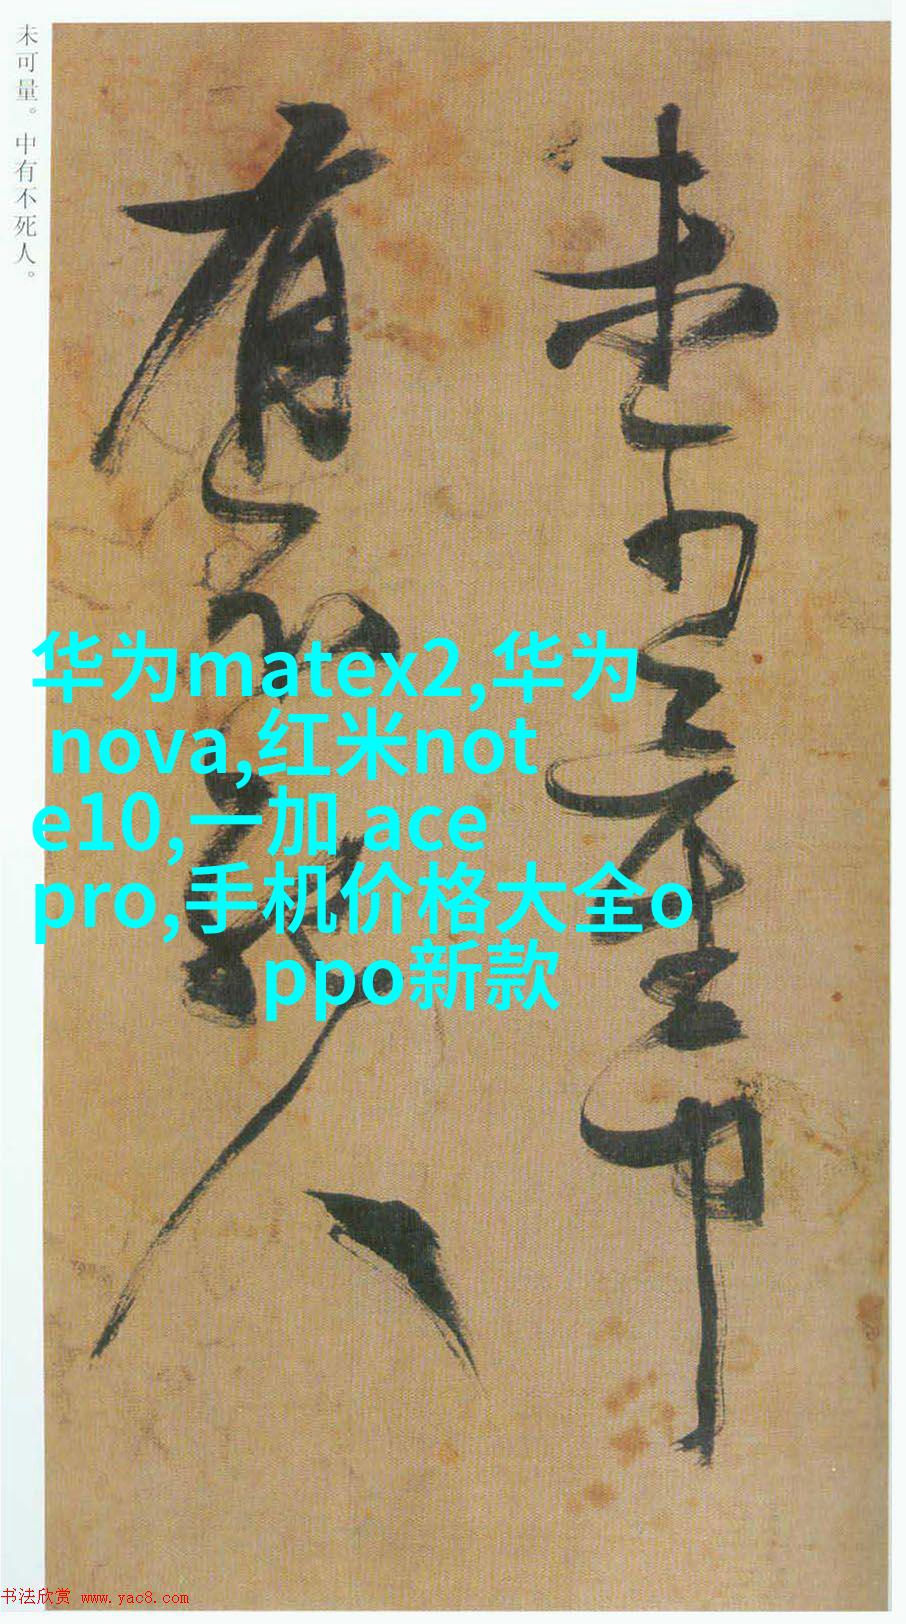 未可量。中有不死人。
未可量中
有不死人
华为matex2,华为
nova,红米not
e10,一加 ace
pro,手机价格大全o
ppo新款
书法欣赏 www.yac8.com